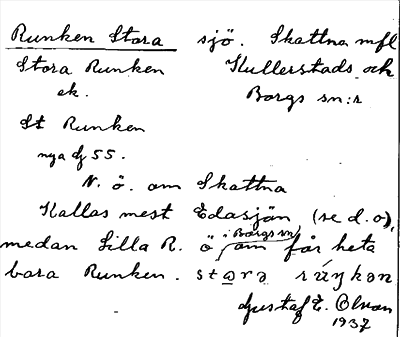 Runken Stora sjö. Skattna mfl
Stora Runken Kullerstads och
ek. Borgs sn:r
St Runken
nya dj 55.
N. ö. om Skattna
Kallas mest Edasjön (se d. o),
i Borgs sn
medan Lilla R. ö om får heta
bara Runken. starə ruŋkən
Gustaf E. Olson
1937